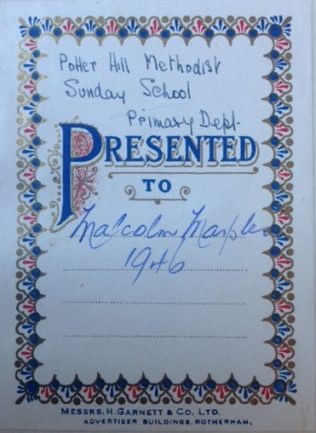 Potter Hill Methodist
Sunday School
Primary Dept.
PRESENTED
TO
Malcolm Marples
1946
MESSRS. H. GARNETT & CO. LTD.
ADVERTISER BUILDINGS, ROTHERHAM.